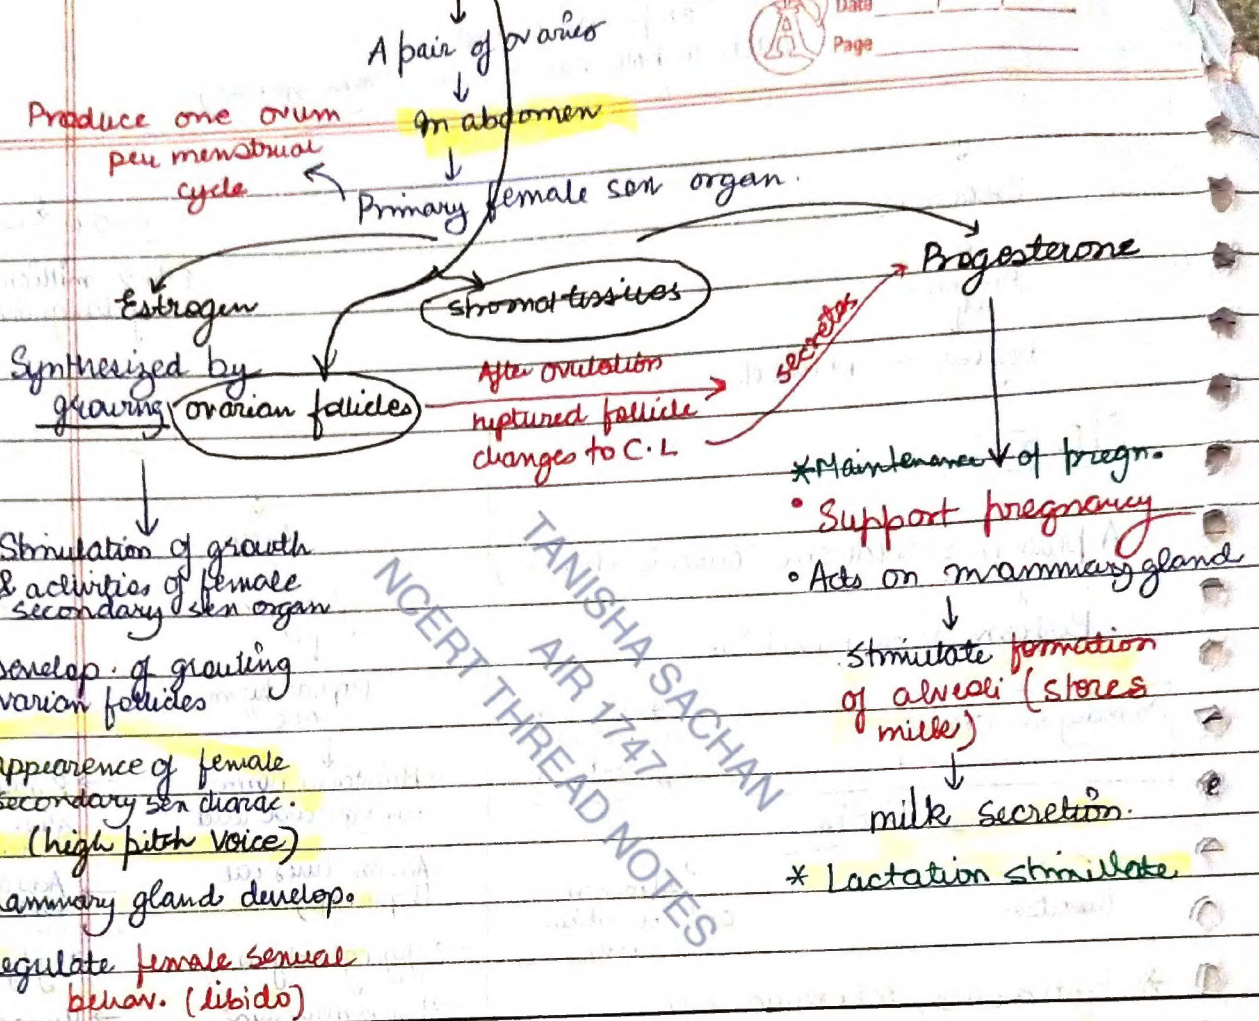 Date
Page
A pair of ovaries
In abdomen
Produce one ovum
per menstrual
cycle
Primary female sex organ.
Estrogen
stromal tissues
Progesterone
Synthesized by
growing ovarian follicles
After ovulation
ruptured follicle
changes to C.L
secretes
*Maintenance of pregn.
• Support pregnancy
• Acts on mammary gland
stimulate formation
of alveoli (stores
milk)
milk secretion.
* Lactation stimillate
Stimulation of growth
& activities of female
secondary sex organ
develop. of growing
varian follicles
appearence of female
secondary sex charac.
(high pitch voice)
ammary gland develop.
egulate female sexual
behav. (libido)
TANISHA SACHAN
AIR 1747
NCERT THREAD NOTES